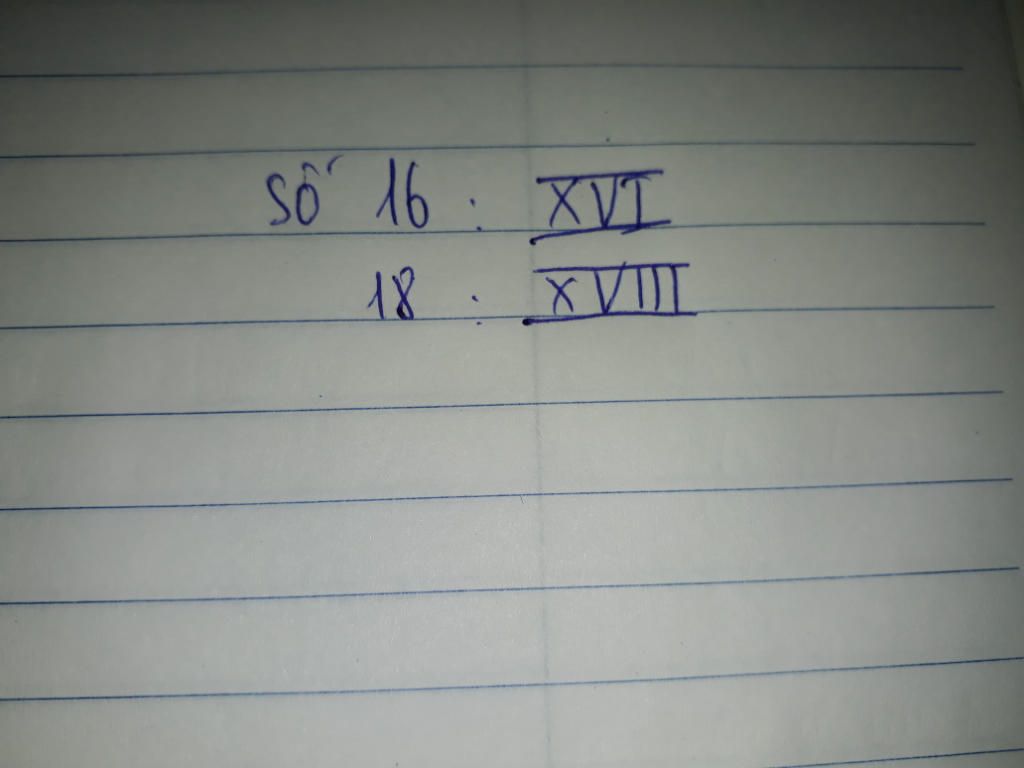 Số 16 : XVI
18 : XVIII